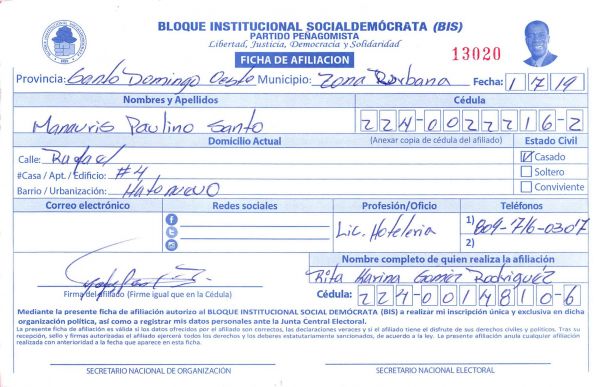 BLOQUE INSTITUCIONAL SOCIALDEMÓCRATA (BIS)
PARTIDO PEÑAGOMISTA
Libertad, Justicia, Democracia y Solidaridad
FICHA DE AFILIACION
13020
Provincia: Santo Domingo Oeste Municipio: Zona Urbana Fecha: 1/7/19
Nombres y Apellidos Cédula
Manauris Paulino Santo 224-0022716-2
(Anexar copia de cédula del afiliado)
Domicilio Actual Estado Civil
Calle: Rafael Casado
#Casa / Apt. / Edificio: #4 Soltero
Barrio / Urbanización: Hato nuevo Conviviente
Correo electrónico Redes sociales Profesión/Oficio Teléfonos
Lic. Hoteleria 1) 809-716-0307
2)
Nombre completo de quien realiza la afiliación
Rita Karina Gomez Rodriguez
Firma del afiliado (Firme igual que en la Cédula) Cédula: 224-0014810-6
Mediante la presente ficha de afiliación autorizo al BLOQUE INSTITUCIONAL SOCIAL DEMÓCRATA (BIS) a realizar mi inscripción única y exclusiva en dicha
organización política, así como a registrar mis datos personales ante la Junta Central Electoral.
La presente ficha de afiliación es válida si los datos ofrecidos por el afiliado son correctos, las declaraciones veraces y si el afiliado tiene el disfrute de sus derechos civiles y políticos. Tras su
recepción, sello y firmas autorizadas el afiliado ejercerá todos los derechos y los deberes estatutariamente sancionados, de acuerdo a la ley. La presente afiliación anula cualquier afiliación
realizada con anterioridad a la fecha que aparece en esta ficha.
SECRETARIO NACIONAL DE ORGANIZACIÓN SECRETARIO NACIONAL ELECTORAL